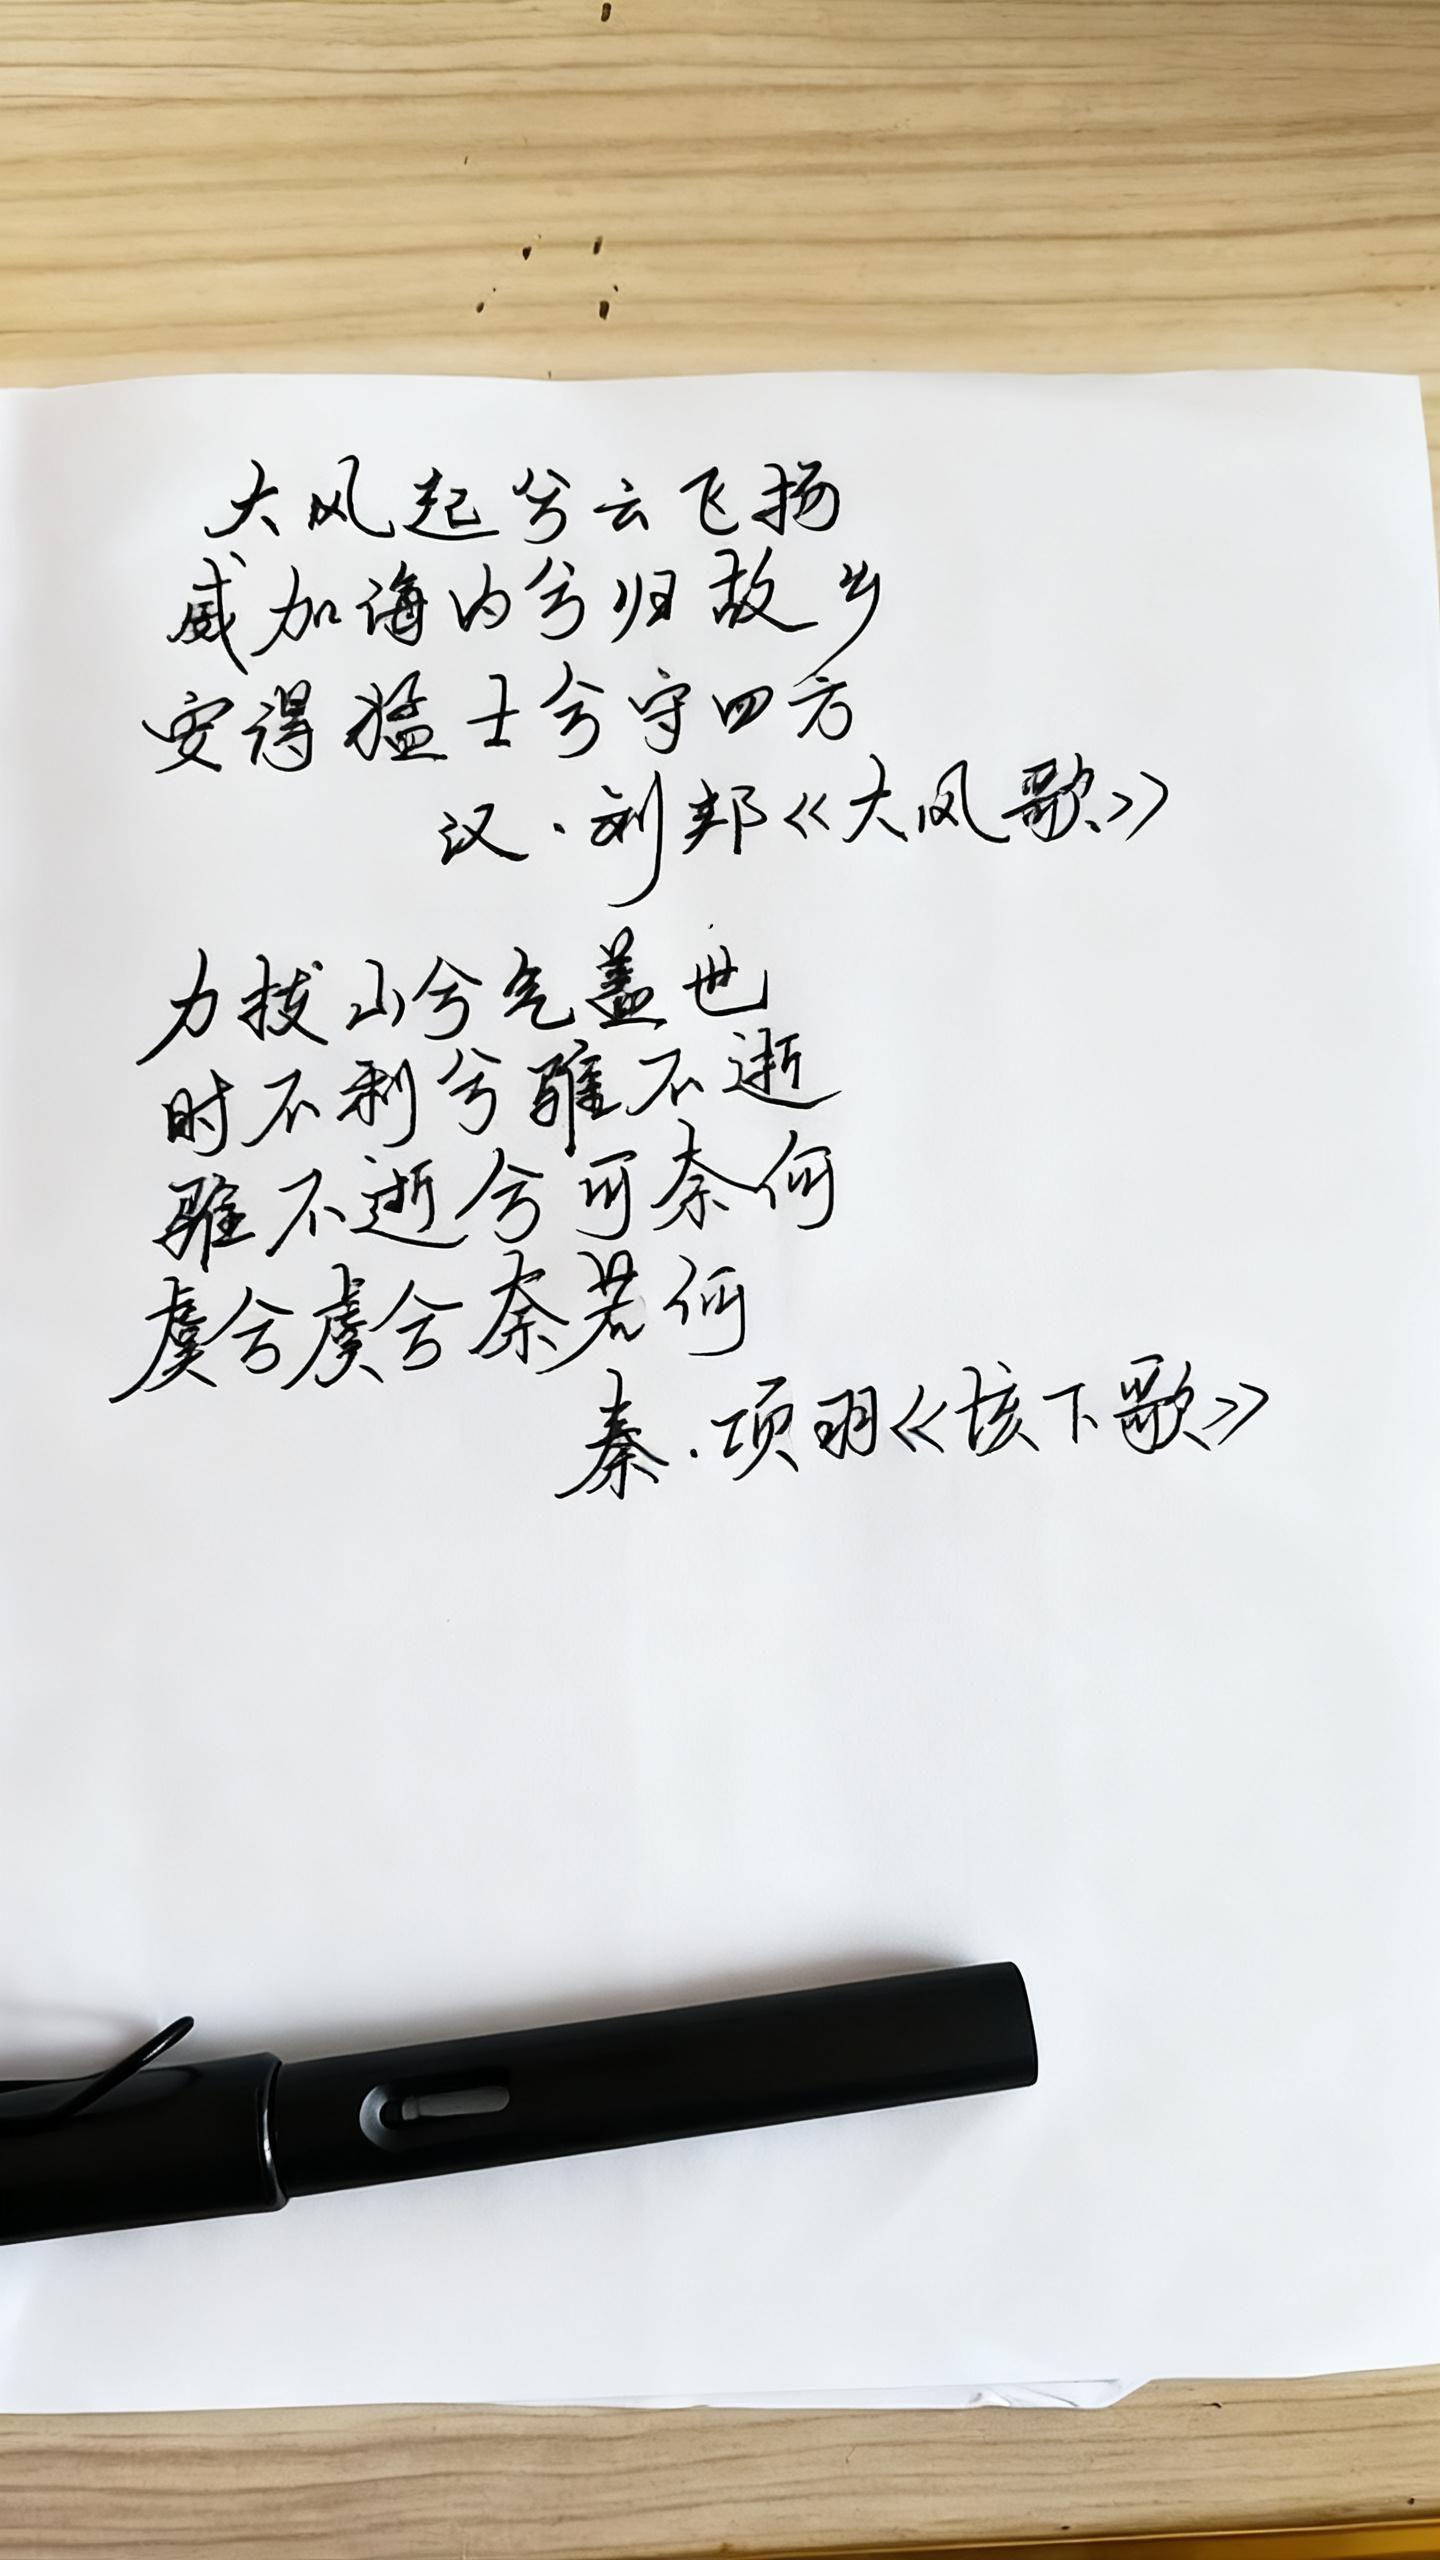 大风起兮云飞扬
威加海内兮归故乡
安得猛士兮守四方
汉·刘邦《大风歌》
力拔山兮气盖世
时不利兮骓不逝
骓不逝兮可奈何
虞兮虞兮奈若何
秦·项羽《垓下歌》